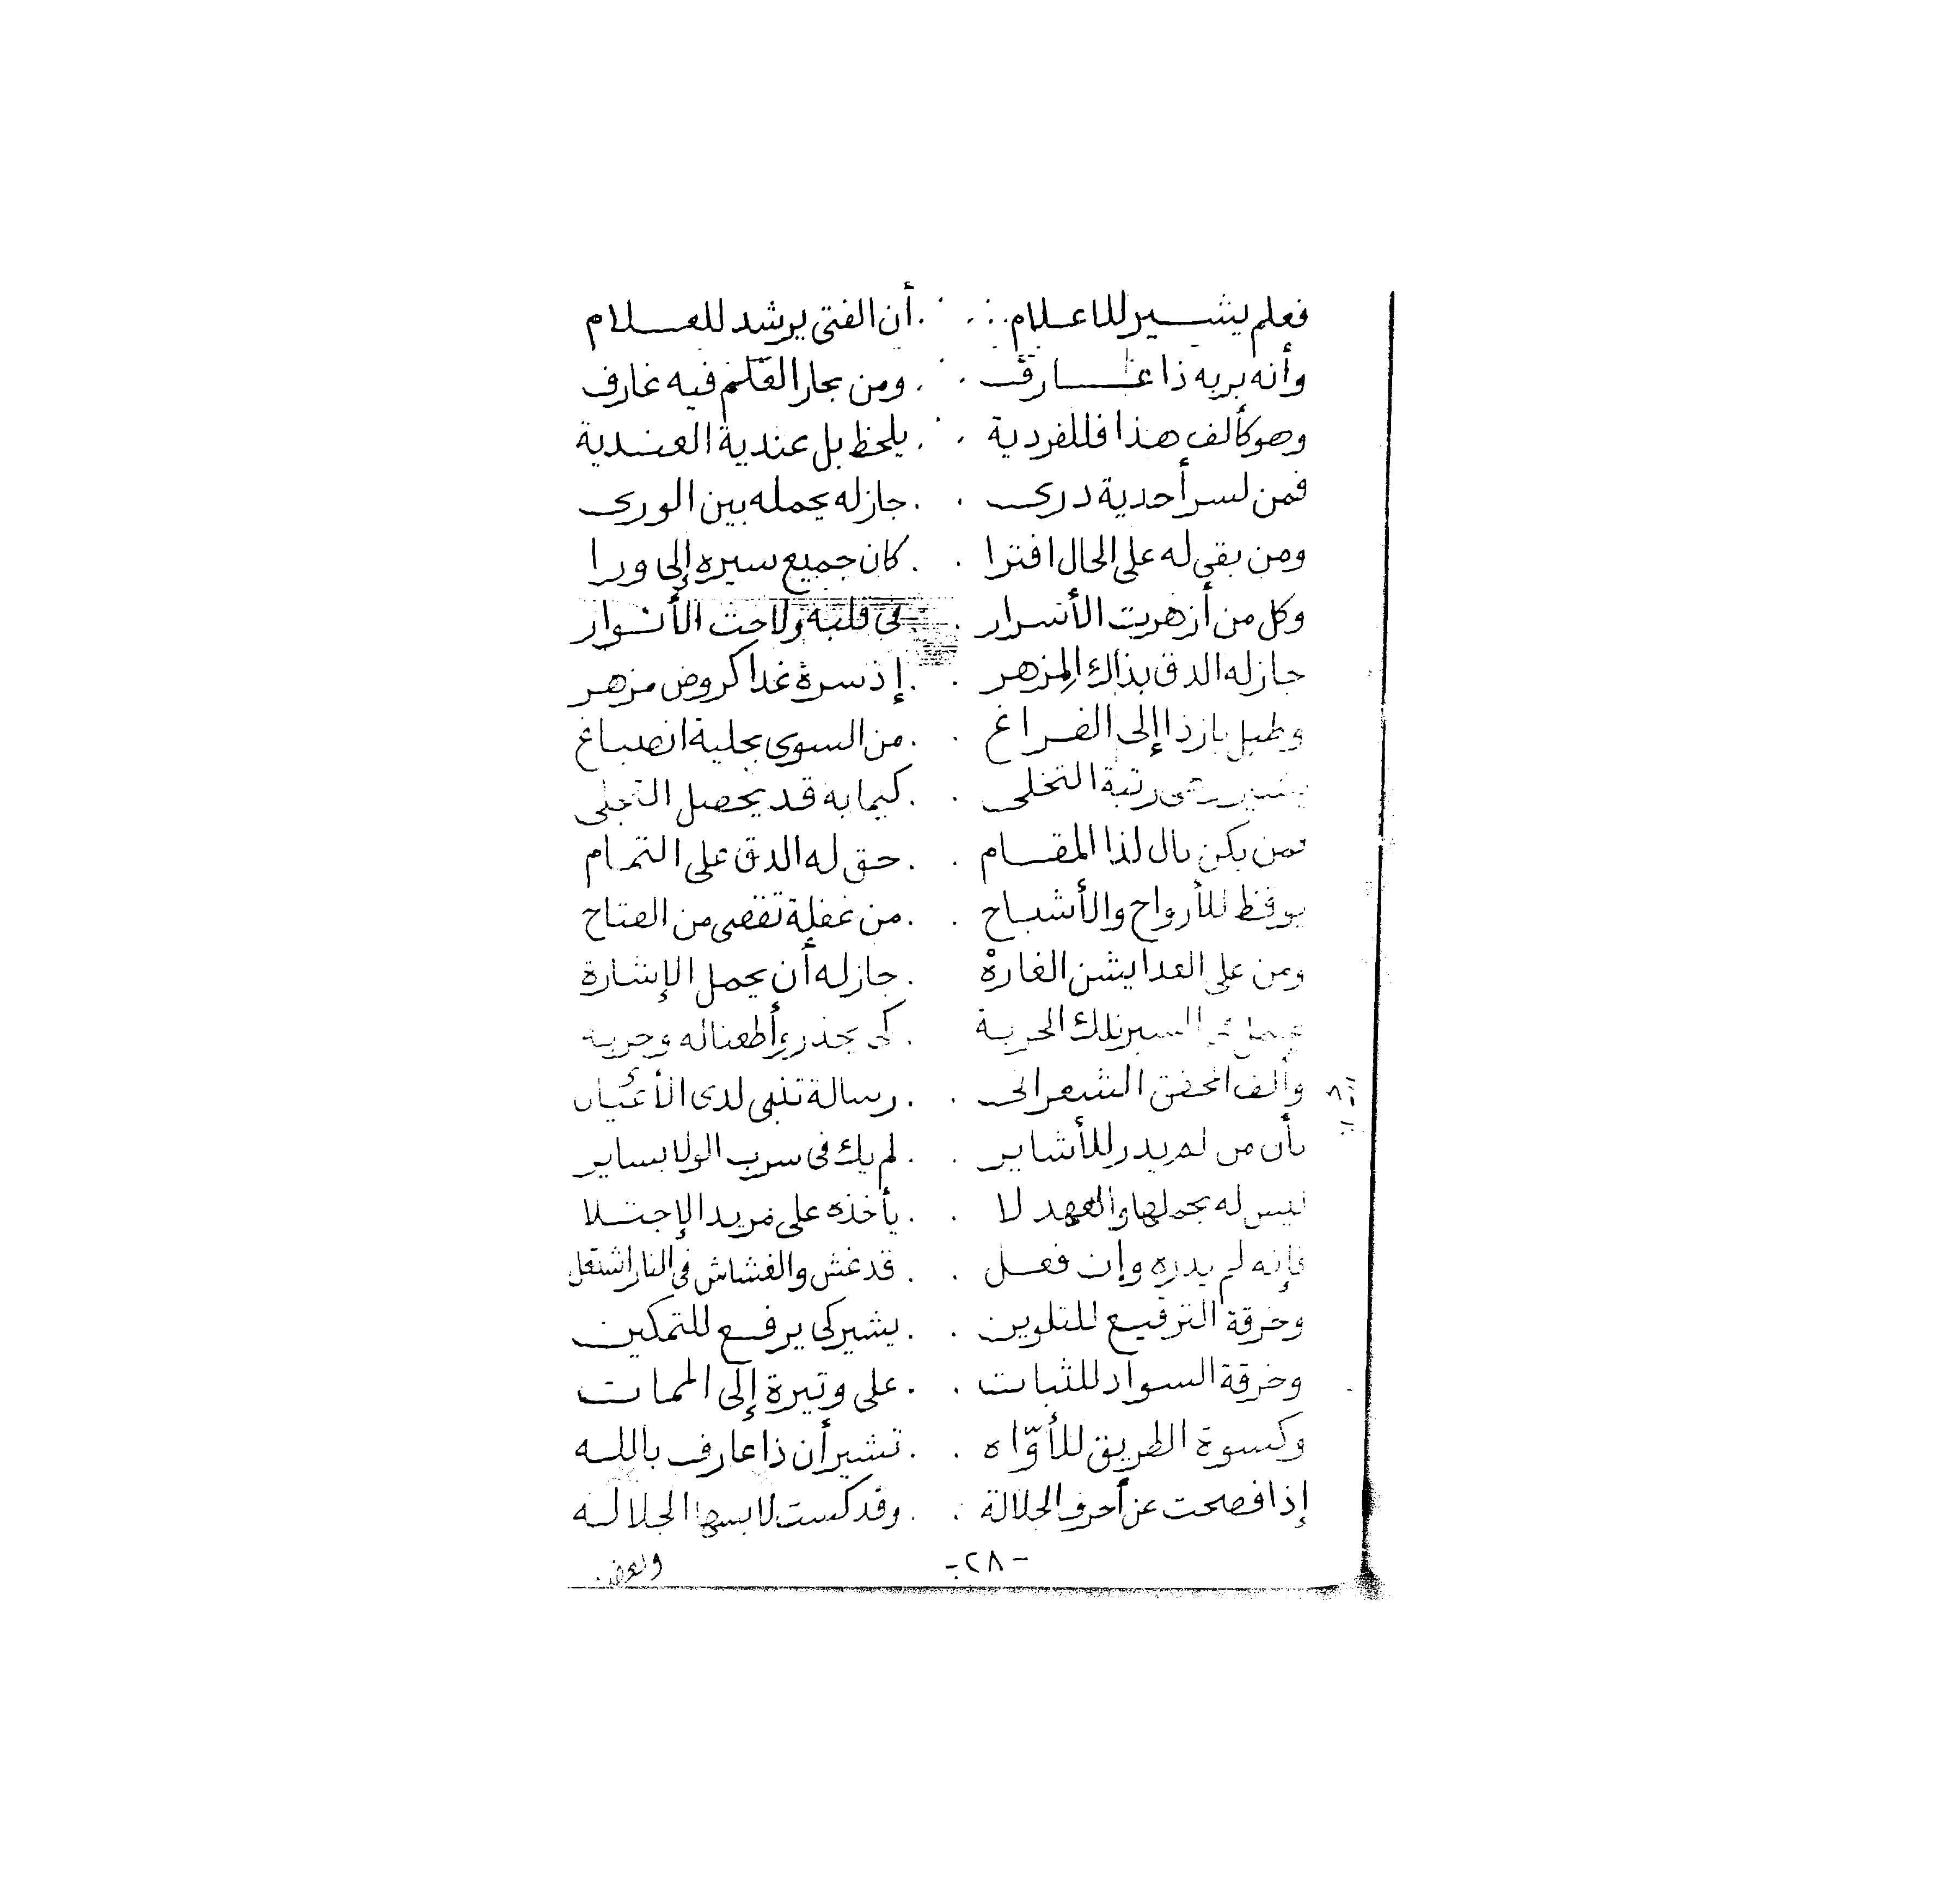 فعلم يشير للاعلام ∴ أن الفتى يرشد للعلام
وأنه بربه ذا عارف ∴ ومن بحار القلزم فيه غارف
وهو كألف هذا فللفردية ∴ يلحظ بل عندية العندية
فمن لسر أحدية درى . . جاز له يحمله بين الورى
ومن بقى له على الحال افترا . . كان جميع سيره إلى ورا
وكل من أزهرت الأسرار . . فى قلبه ولاحت الأنوار
جاز له الدق بذاك المِزهر . . إذ سره غدا كروض مزهر
وطبل باز ذا إلى الفراغ . . من السوى بحلية انصباغ
رتبة التخلى . . كيما به قد يحصل التجلى
فمن يكن نال لذا المقام . . حق له الدق على التمام
يوقظ للأرواح والأشباح . . من غفلة تقصى من الفتاح
ومن على العدا يشن الغارة . جاز له أن يحمل الإشارة
السير تلك الحربة . كى يحذروا طعناله وحربه
وألف المحقق الشعرانى . . رسالة تنبى لدى الأعيان
بأن من لم يدر للأشاير . . لم يك فى سرب الولا بساير
ليس له يحملها والعهد لا . . يأخذه على مريد الإجتلا
فإنه لم يدره وإن فعل . . قد غش والغشاش فى النار اشتعل
وخرقة الترقيع للتلوين . . يشير كى يرفع للتمكين
وخرقة السواد للثبات . . على وتيرة إلى الممات
وكسوة الطريق للأوّاه . . تشير أن ذا عارف بالله
إذا فصحت عن أحرف الجلالة . . وقد كست لابسها الجلاله
- ٢٨ -